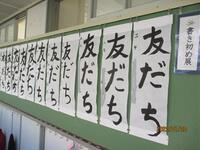 書き初め展
友だち
友だち
友だち
友だち
友だち
友だち
友だち
友だち